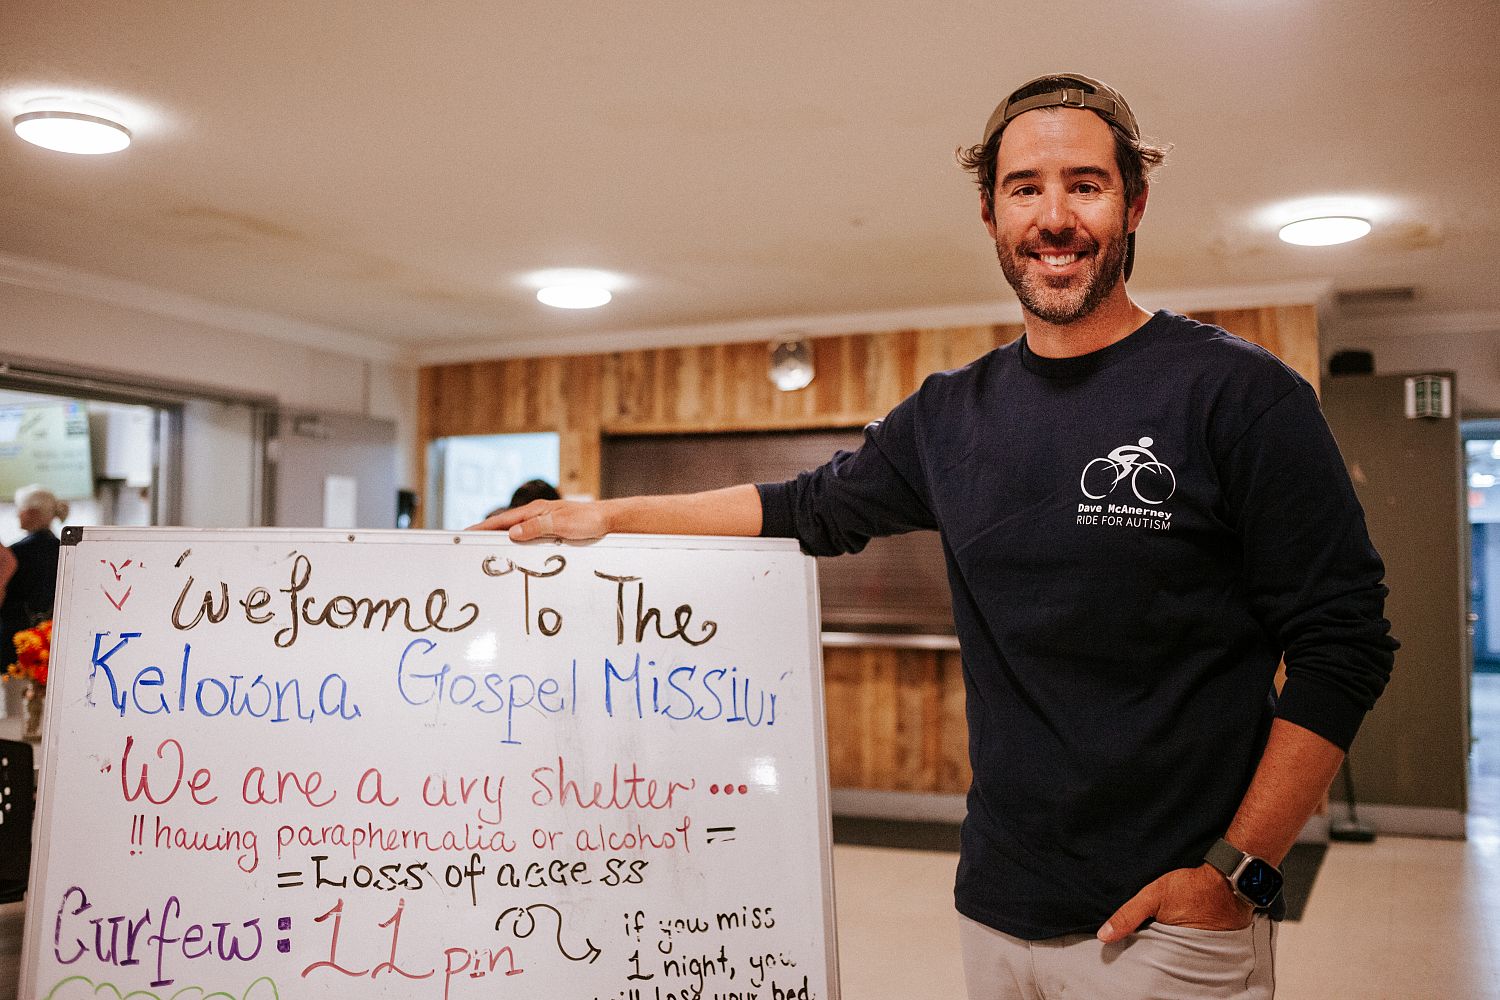 Welcome To The
Kelowna Gospel Mission
We are a dry shelter...
!! having paraphernalia or alcohol =
= Loss of access
Curfew: 11 pm
if you miss
1 night, you
will lose your bed.
Dave McAnerney
RIDE FOR AUTISM